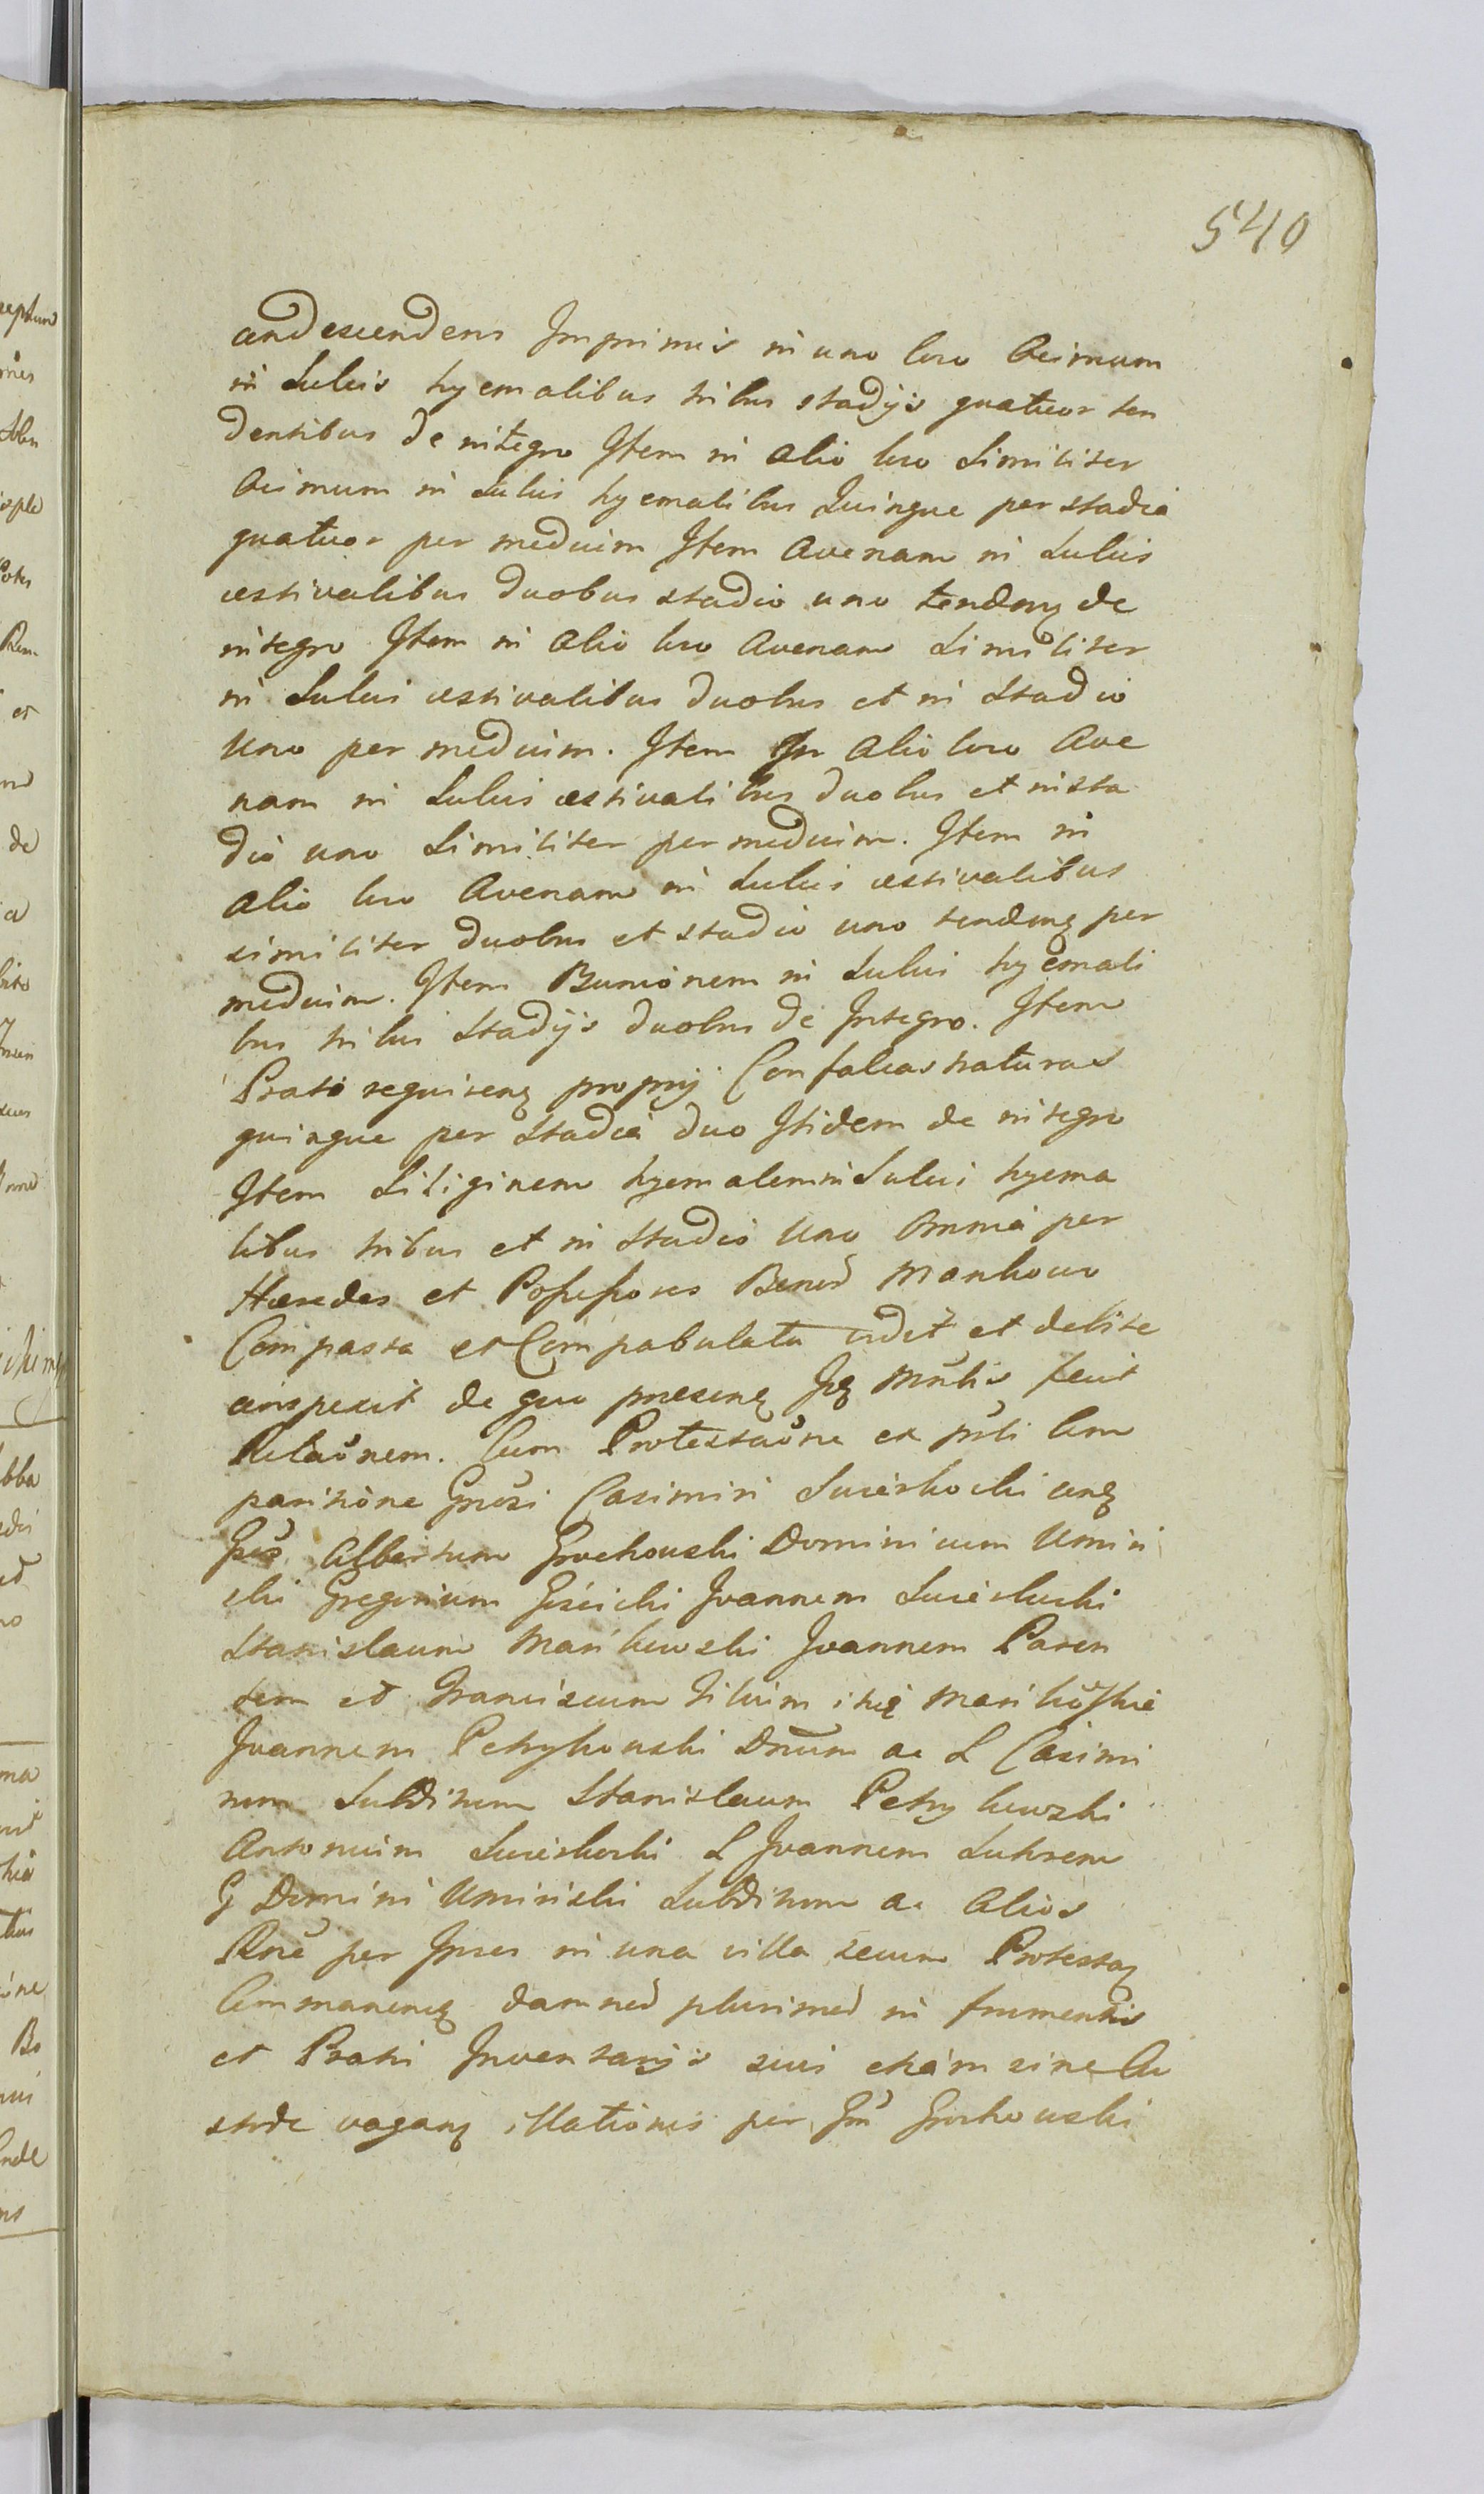 540
condescendens Imprimis in uno loco Acimum
in Sulcis hyemalibus tribus stadijs quatuor ten
dentibus de integro Item in alio loco Similiter
Acimum in Sulcis hyemalibus Quinque per stadia
quatuor per medium Item Avenam in Sulcis
æstivalibus duobus stadio uno tendenꝫ de
integro Item in alio loco Avenam Similiter
in Sulcis æstivalibus duobus et in Stadio
Uno per medium. Item In alio loco Ave
nam in Sulcis æstivalibus duobus et in sta
dio uno Similiter per medium. Item in
alio loco Avenam in Sulcis æstivalibus
similiter duobus et stadio uno tendenꝫ per
medium. Item Bunionem in Sulcis hyemali
bus tribus Stadijs duobus de Integro. Item
Prati proprij Confalcastraturas
quinque per Stadia duo Itidem de integro
Item Siliginem hyemalem in Sulcis hyema
libus tribus et in Stadio Uno Omnia per
Hæredes et Possessores Bonorũ Mankowo
Compasta et Compabulata vidit et debite
conspexit de quo presenꝫ Iꝫ Mnĩs fecit
Relaõnem. Cum Protestaõne ex pr̃ti Com
paritione Gnõsi Casimiri Sucirkoski conꝫ
Gñs Albertum Grochowski Dominicum Umin
ski Gregorium Gisicki Joannem Sucirkoski
Stanislaum Mańkowski Joannem Paren
tem et Franciscum filium itiꝫ Mańkõskie
Joannem Petrykowski Dnũm ac L Casimi
rum Subditum Stanislaum Petrykowski
Antonium Sucirkoski L Joannem Sutrem
G Domini Uminski Subditum ac alios
Rñe per Ipsos in una villa secum Protestaꝫ
Commanenꝫ damnorũ plurimorũ in frumentis
et Pratis Inventarijs suis etiam sine Cu
stode vaganꝫ illationis per Gñ Grochowski